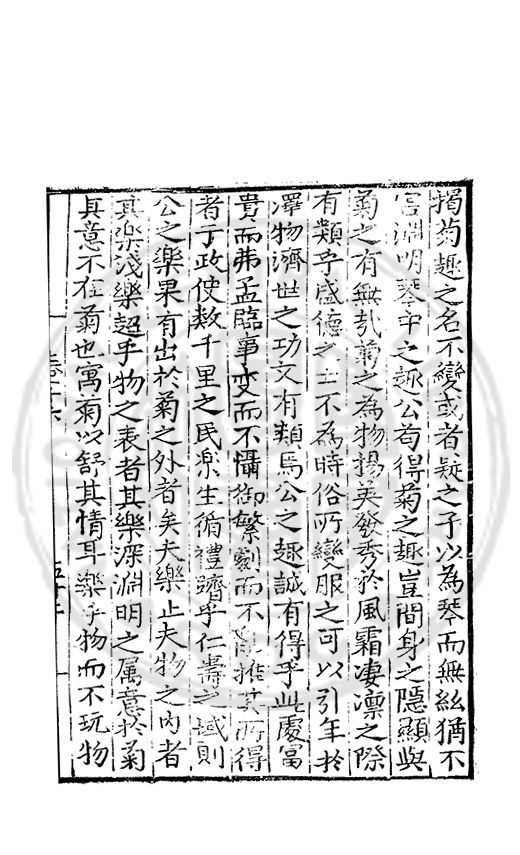 揭菊趣之名不變或者疑之予以為琴而無絲猶不
害淵明琴中之趣公苟得菊之趣豈間身之隱顯與
菊之有無哉菊之為物揚英發秀於風霜凄凛之際
有類乎盛德之士不為時俗所變服之可以引年於
澤物濟世之功又有類焉公之趣誠有得乎此處富
貴而弗孟臨事变而不懾御繁劇而不亂推其所得
者于政使数千里之民樂生循禮躋乎仁壽之域則
公之樂果有出於菊之外者矣夫樂止夫物之内者
其樂淺樂超乎物之表者其樂深淵明之属意於菊
其意不在菊也寓菊以舒其情耳樂乎物而不玩物